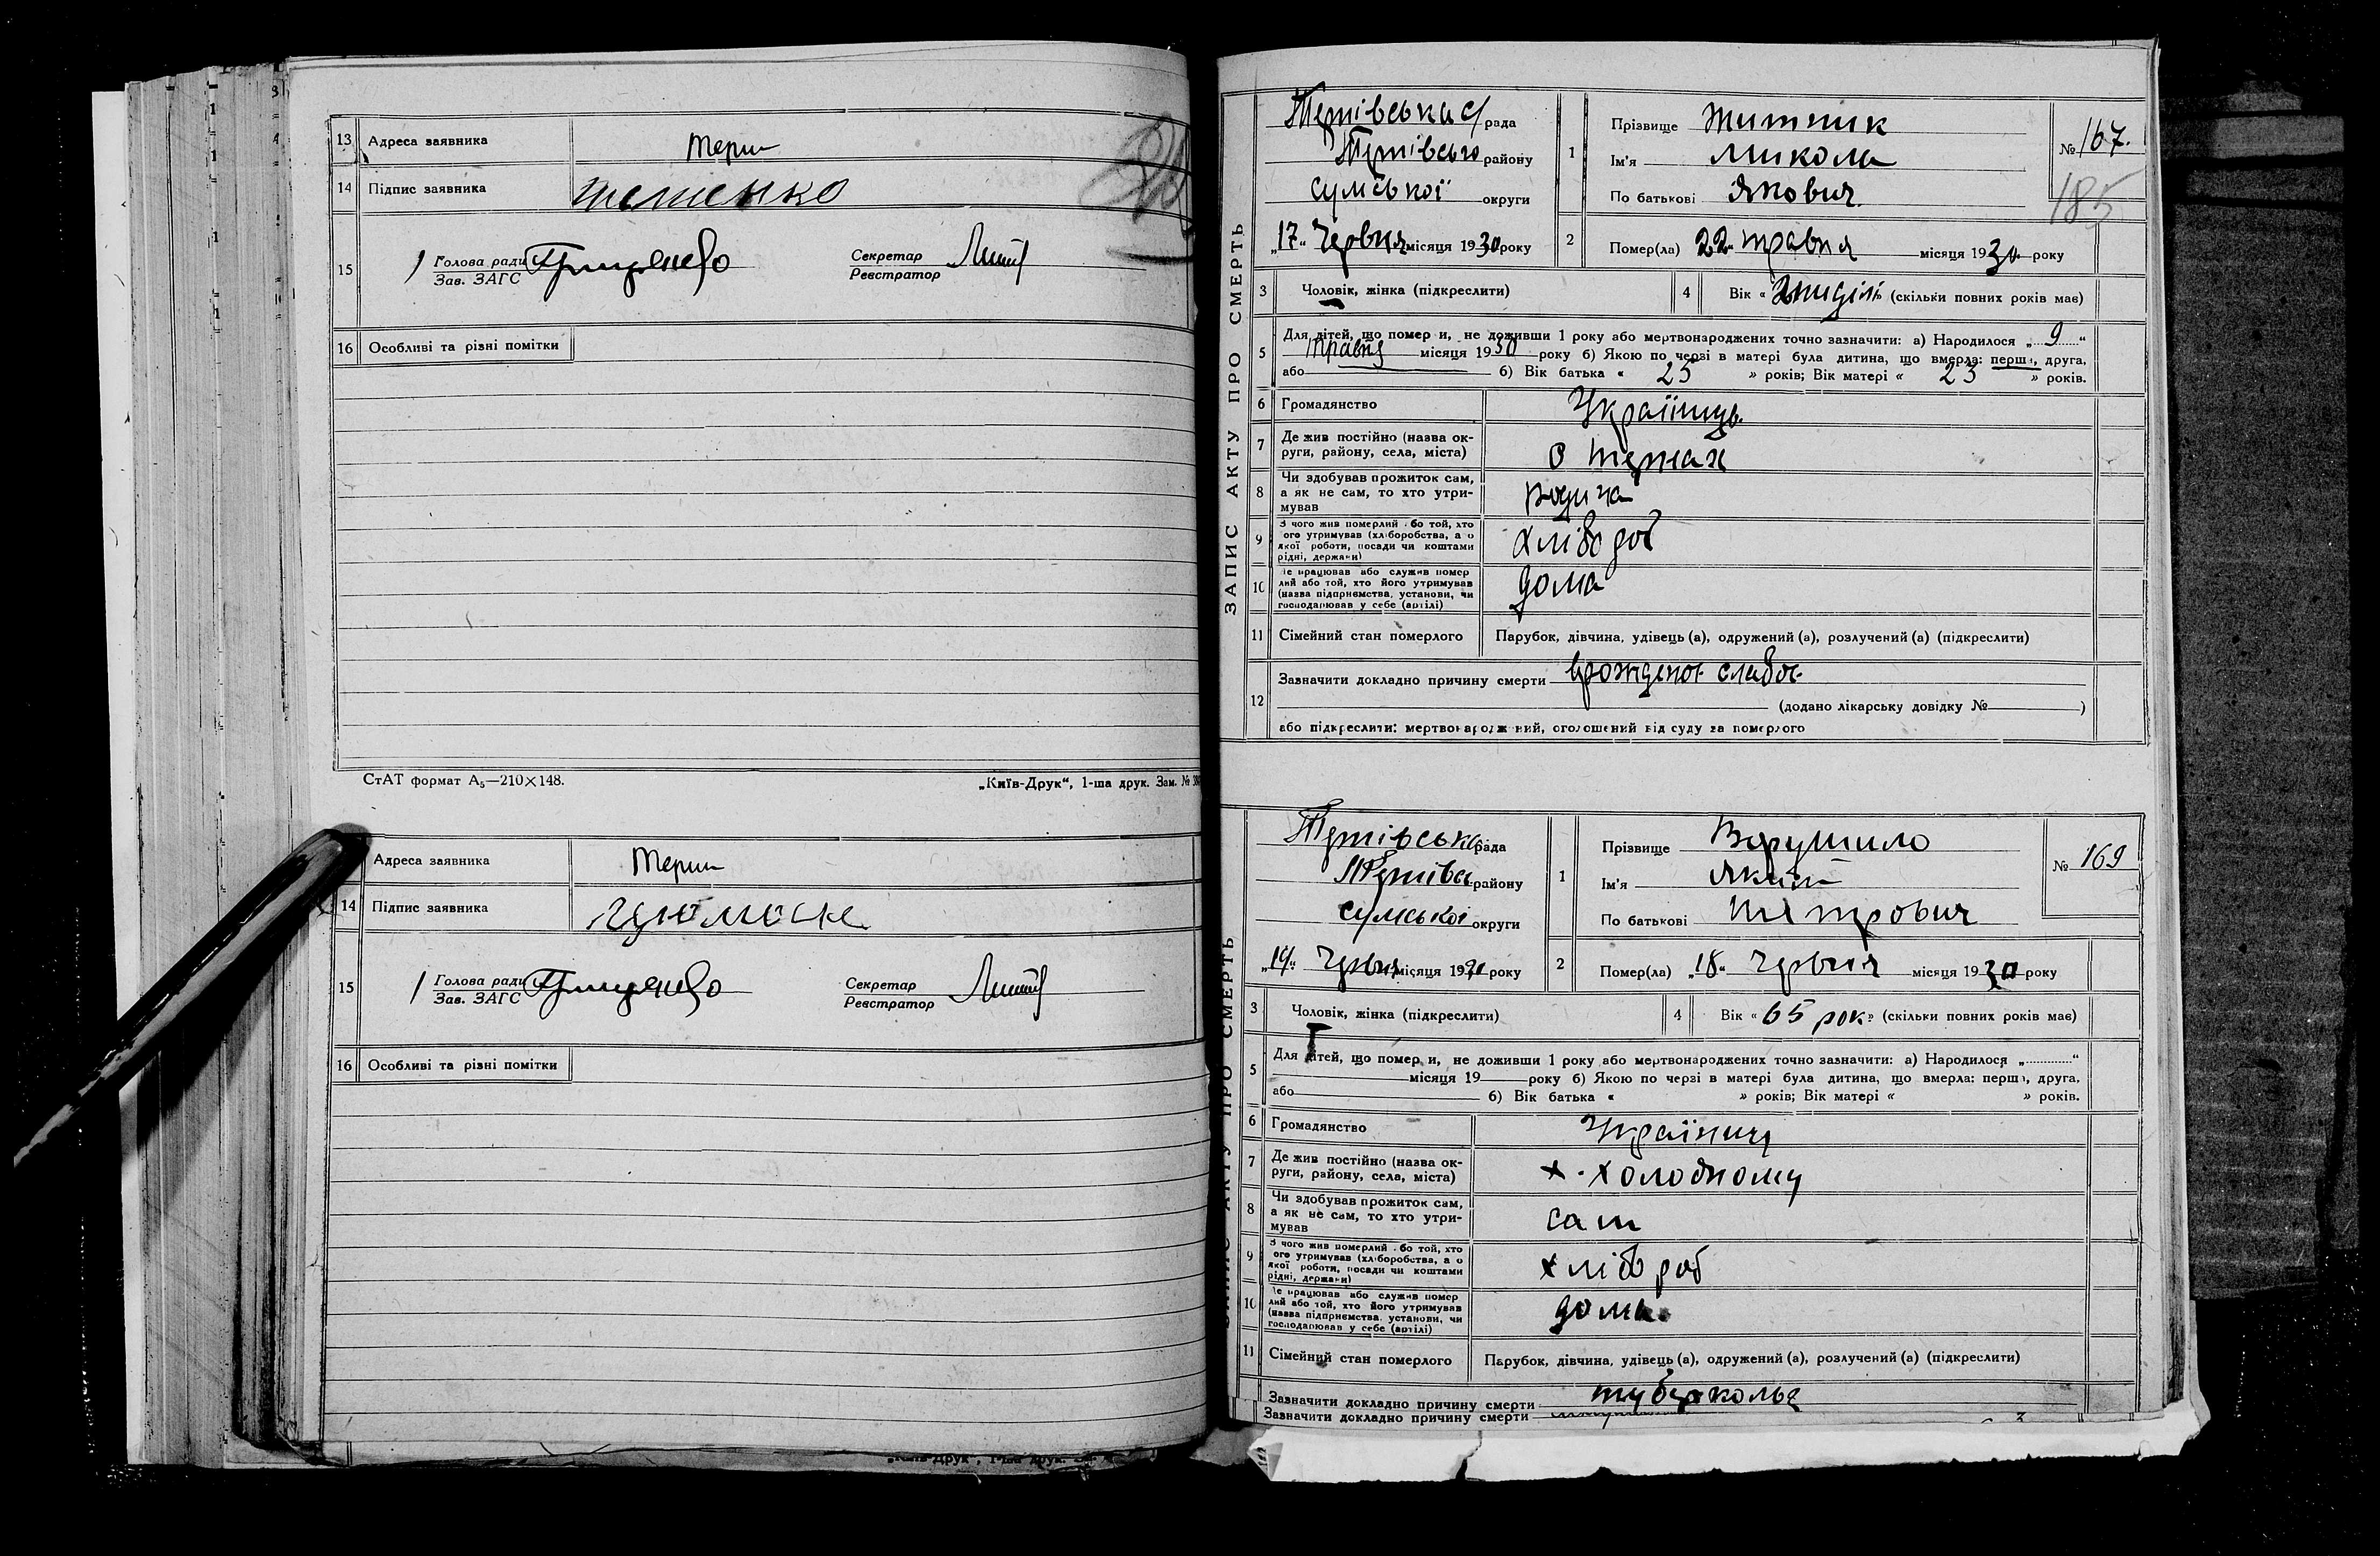 13 Адреса заявника Терни
14 Підпис заявника
15 Голова ради
Зав. ЗАГС
Секретар
Реєстратор
16 Особливі та різні помітки
СтАТ формат А₅—210×148.
„Київ-Друк“, 1-ша друк. Зам. №
Адреса заявника Терни
14 Підпис заявника
15 Голова ради
Зав. ЗАГС
Секретар
Реєстратор
16 Особливі та різні помітки
ЗАПИС АКТУ ПРО СМЕРТЬ
Тернівська с/рада
Тернівсього району
Сумської округи
„17“ Червня місяця 1930 року
1 Прізвище Житник
Ім'я Микола
По батькові Якович
№ 167.
185
2 Помер(ла) 22 травня місяця 1930 року
3 Чоловік, жінка (підкреслити)
4 Вік « 2 неділі » (скільки повних років має)
5 Для дітей, що помер и, не доживши 1 року або мертвонароджених точно зазначити: а) Народилося „ 9 “
травня місяця 1930 року б) Якою по черзі в матері була дитина, що вмерла: перша, друга,
або б) Вік батька « 25 » років; Вік матері « 23 » років.
6 Громадянство Українець
7 Де жив постійно (назва ок-
руги, району, села, міста) с Тернах
8 Чи здобував прожиток сам,
а як не сам, то хто утри-
мував родина
9 З чого жив померлий або той, хто
його утримував (хліборобства, а о
якої роботи, посади чи коштами
рідні, держави) хлібороб
10 Де працював або служив помер
лий або той, хто його утримував
(назва підприємства, установи, чи
господарював у себе (артілі) дома
11 Сімейний стан померлого Парубок, дівчина, удівець (а), одружений (а), розлучений (а) (підкреслити)
12 Зазначити докладно причину смерти врожденої слабос.
(додано лікарську довідку № )
або підкреслити: мертвонароджений, оголошений від суду за померлого
ПРО СМЕРТЬ
Тернівська рада
Тернівс району
Сумської округи
„19“ Червня місяця 1930 року
1 Прізвище Ворушило
Ім'я Яким
По батькові Петрович
№ 169
2 Помер(ла) „18“ Червня місяця 1930 року
3 Чоловік, жінка (підкреслити)
4 Вік « 65 рок » (скільки повних років має)
5 Для дітей, що помер и, не доживши 1 року або мертвонароджених точно зазначити: а) Народилося „ “
місяця 19 року б) Якою по черзі в матері була дитина, що вмерла: перша, друга,
або б) Вік батька « » років; Вік матері « » років.
6 Громадянство Українец
7 Де жив постійно (назва ок-
руги, району, села, міста) х. Холодному
8 Чи здобував прожиток сам,
а як не сам, то хто утри-
мував сам
9 З чого жив померлий або той, хто
його утримував (хліборобства, а о
якої роботи, посади чи коштами
рідні, держави) хлібороб
10 Де працював або служив помер
лий або той, хто його утримував
(назва підприємства, установи, чи
господарював у себе (артілі) дома
11 Сімейний стан померлого Парубок, дівчина, удівець (а), одружений (а), розлучений (а) (підкреслити)
Зазначити докладно причину смерти туберкольз
Зазначити докладно причину смерти